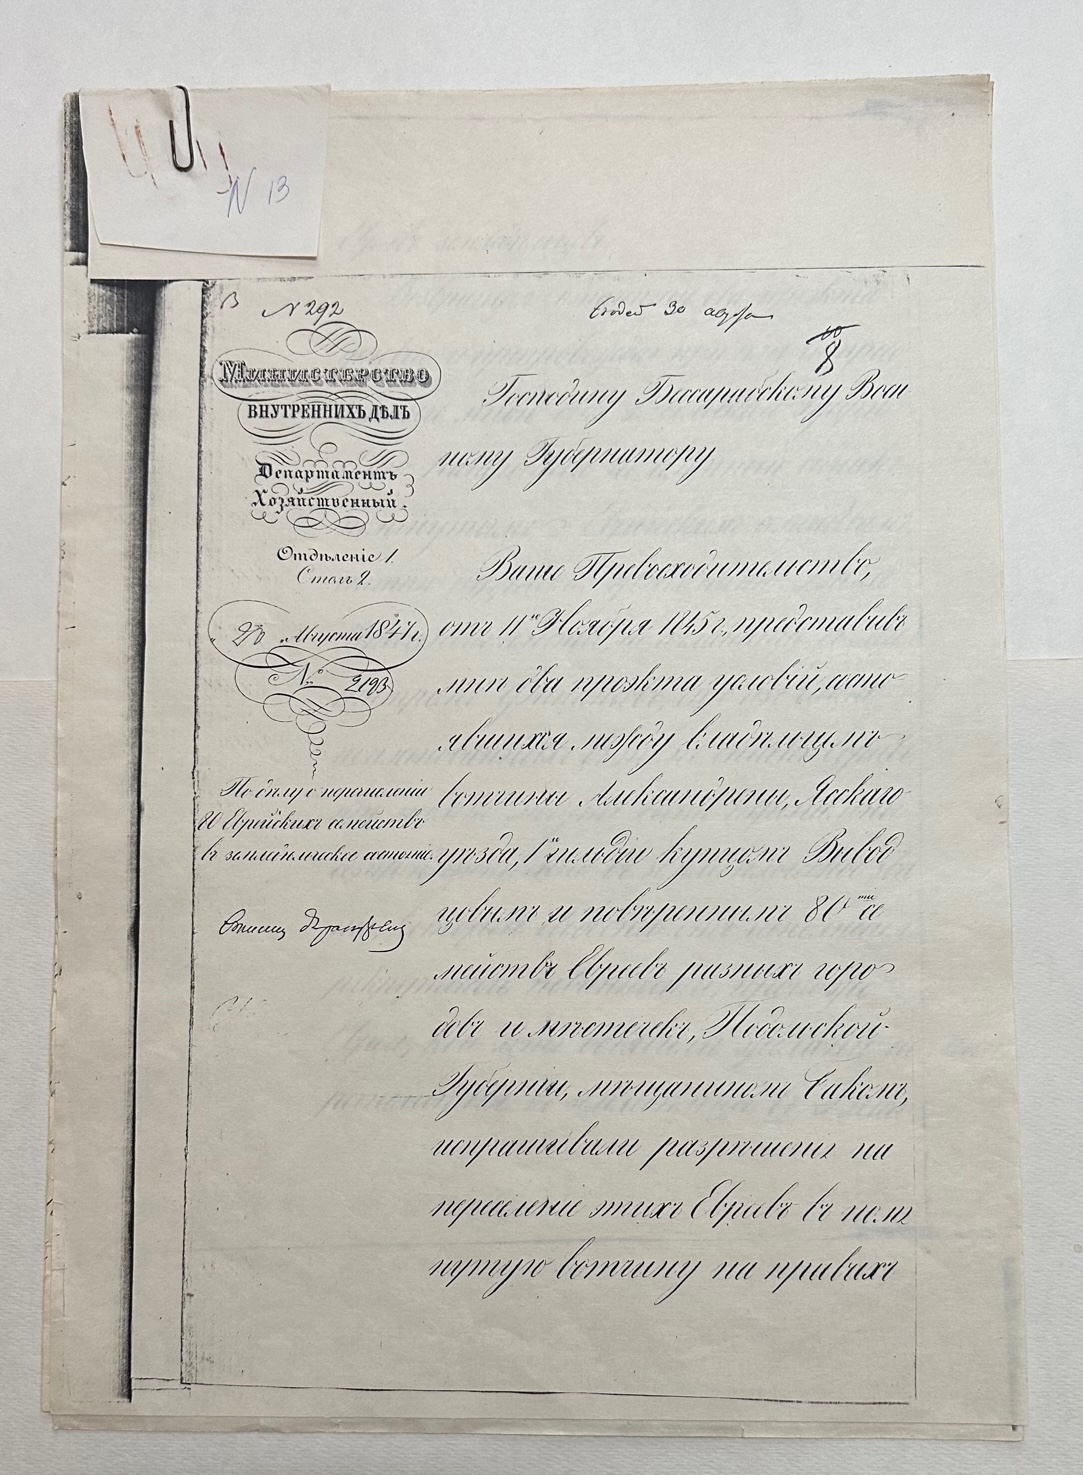 N 13
В
N 292
30
8
МИНИСТЕРСТВО
ВНУТРЕННИХЪ ДѢЛЪ
Департаментъ
Хозяйственный.
Отдѣленіе 1.
Столъ 2.
Августа 1847 г.
№ 2193
По дѣлу о перечисленіи
80 Еврейскихъ семействъ
въ земледѣльческое состояніе.
Господину Бессарабскому Воен
ному Губернатору
Ваше Превосходительство,
отъ 11го Ноября 1845 г., представивъ
мнѣ два проэкта условій, состо-
явшихся между владѣльцемъ
вотчины Александрени, Ясскаго
уѣзда, 1й гильдіи купцомъ Вывод
цовымъ и повѣреннымъ 80ти се
мействъ Евреевъ разныхъ горо
довъ и мѣстечекъ, Подольской
Губерніи, мѣщаниномъ
испрашивали разрѣшенія на
переселеніе этихъ Евреевъ въ помя
нутую вотчину на правахъ